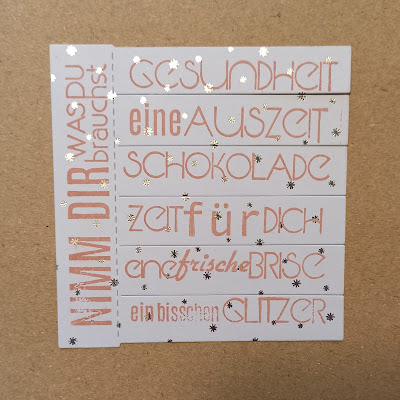 NIMM DIR
WAS DU
brauchst
GESUNDHEIT
eine AUSZEIT
SCHOKOLADE
ZEIT für DICH
eine frische BRISE
ein bisschen GLITZER